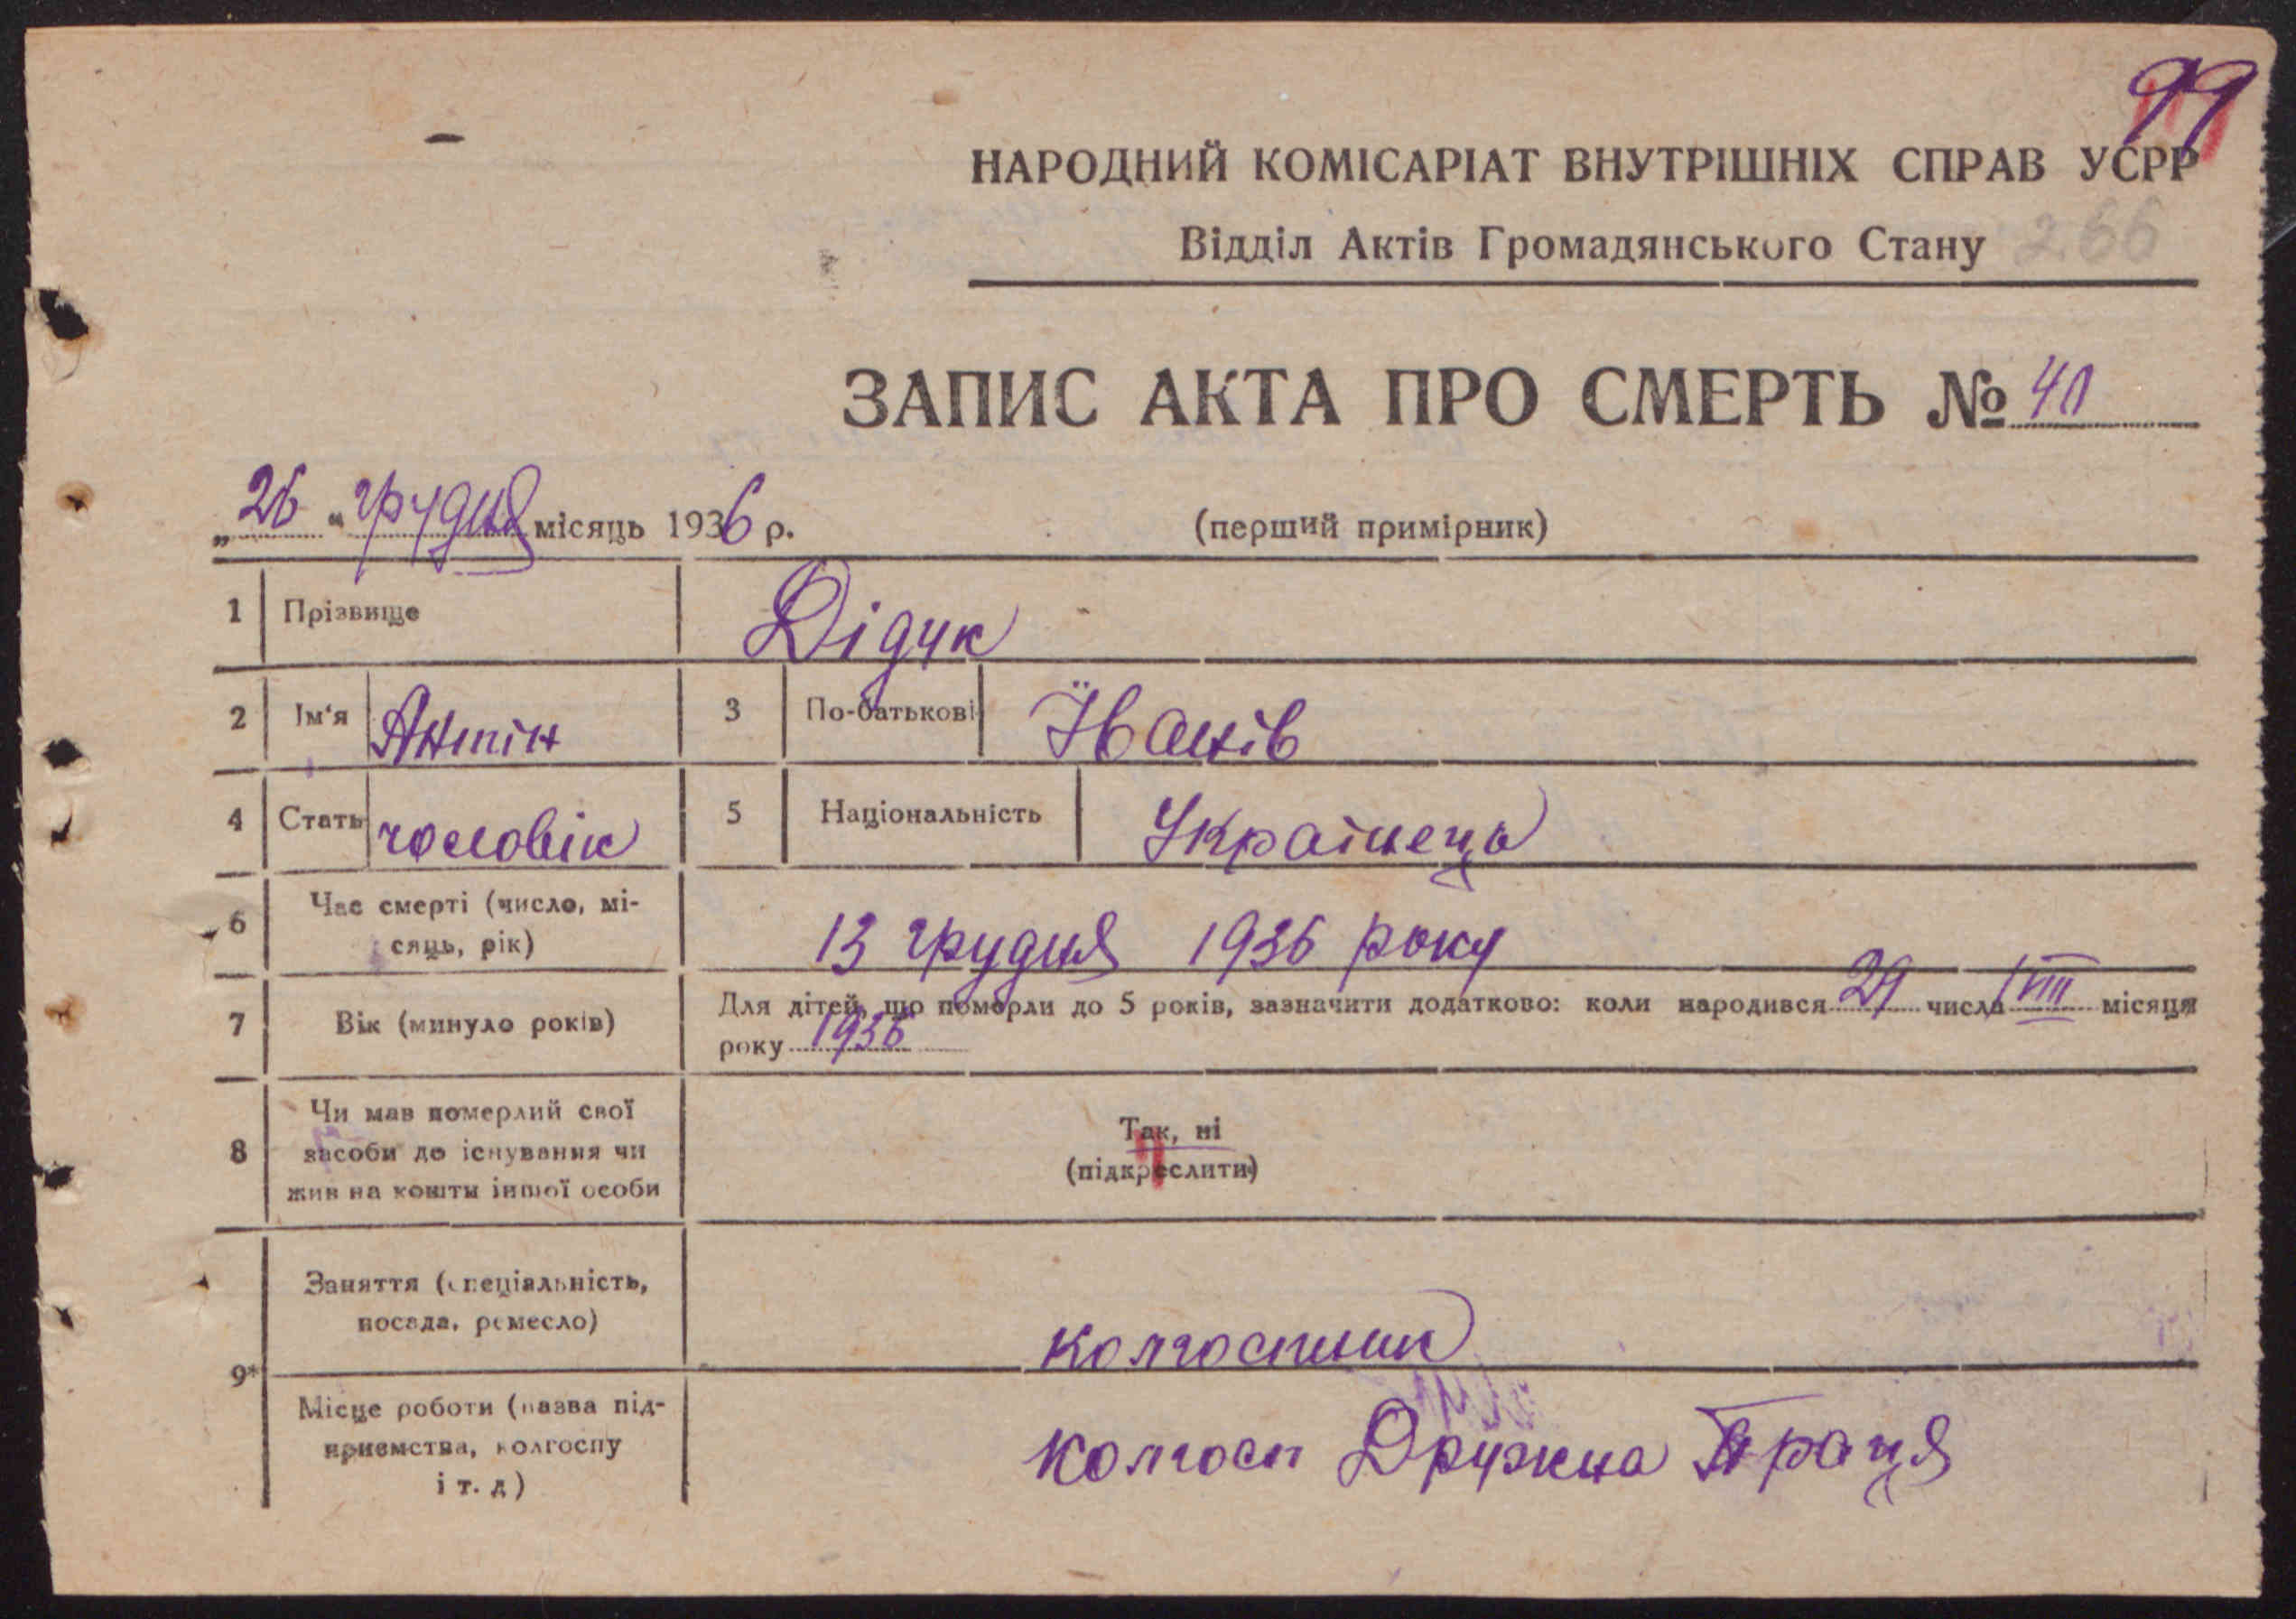 99
НАРОДНИЙ КОМІСАРІАТ ВНУТРІШНІХ СПРАВ УСРР
Відділ Актів Громадянського Стану 266
ЗАПИС АКТА ПРО СМЕРТЬ № 40
„26“ грудня місяць 1936 р. (перший примірник)
1 Прізвище Дідук
2 Ім'я Антін 3 По-батькові Їванів
4 Стать чоловік 5 Національність Українець
6 Час смерті (число, мі-
сяць, рік) 13 грудня 1936 року
7 Вік (минуло років) Для дітей, що померли до 5 років, зазначити додатково: коли народився 29 числа VIII місяця
року 1936
8 Чи мав померлий свої
засоби до існування чи
жив на кошти іншої особи
Так, ні
(підкреслити)
9* Заняття (спеціальність,
посада, ремесло) колгоспник
Місце роботи (назва під-
приємства, колгоспу
і т. д) колгосп Дружна Праця